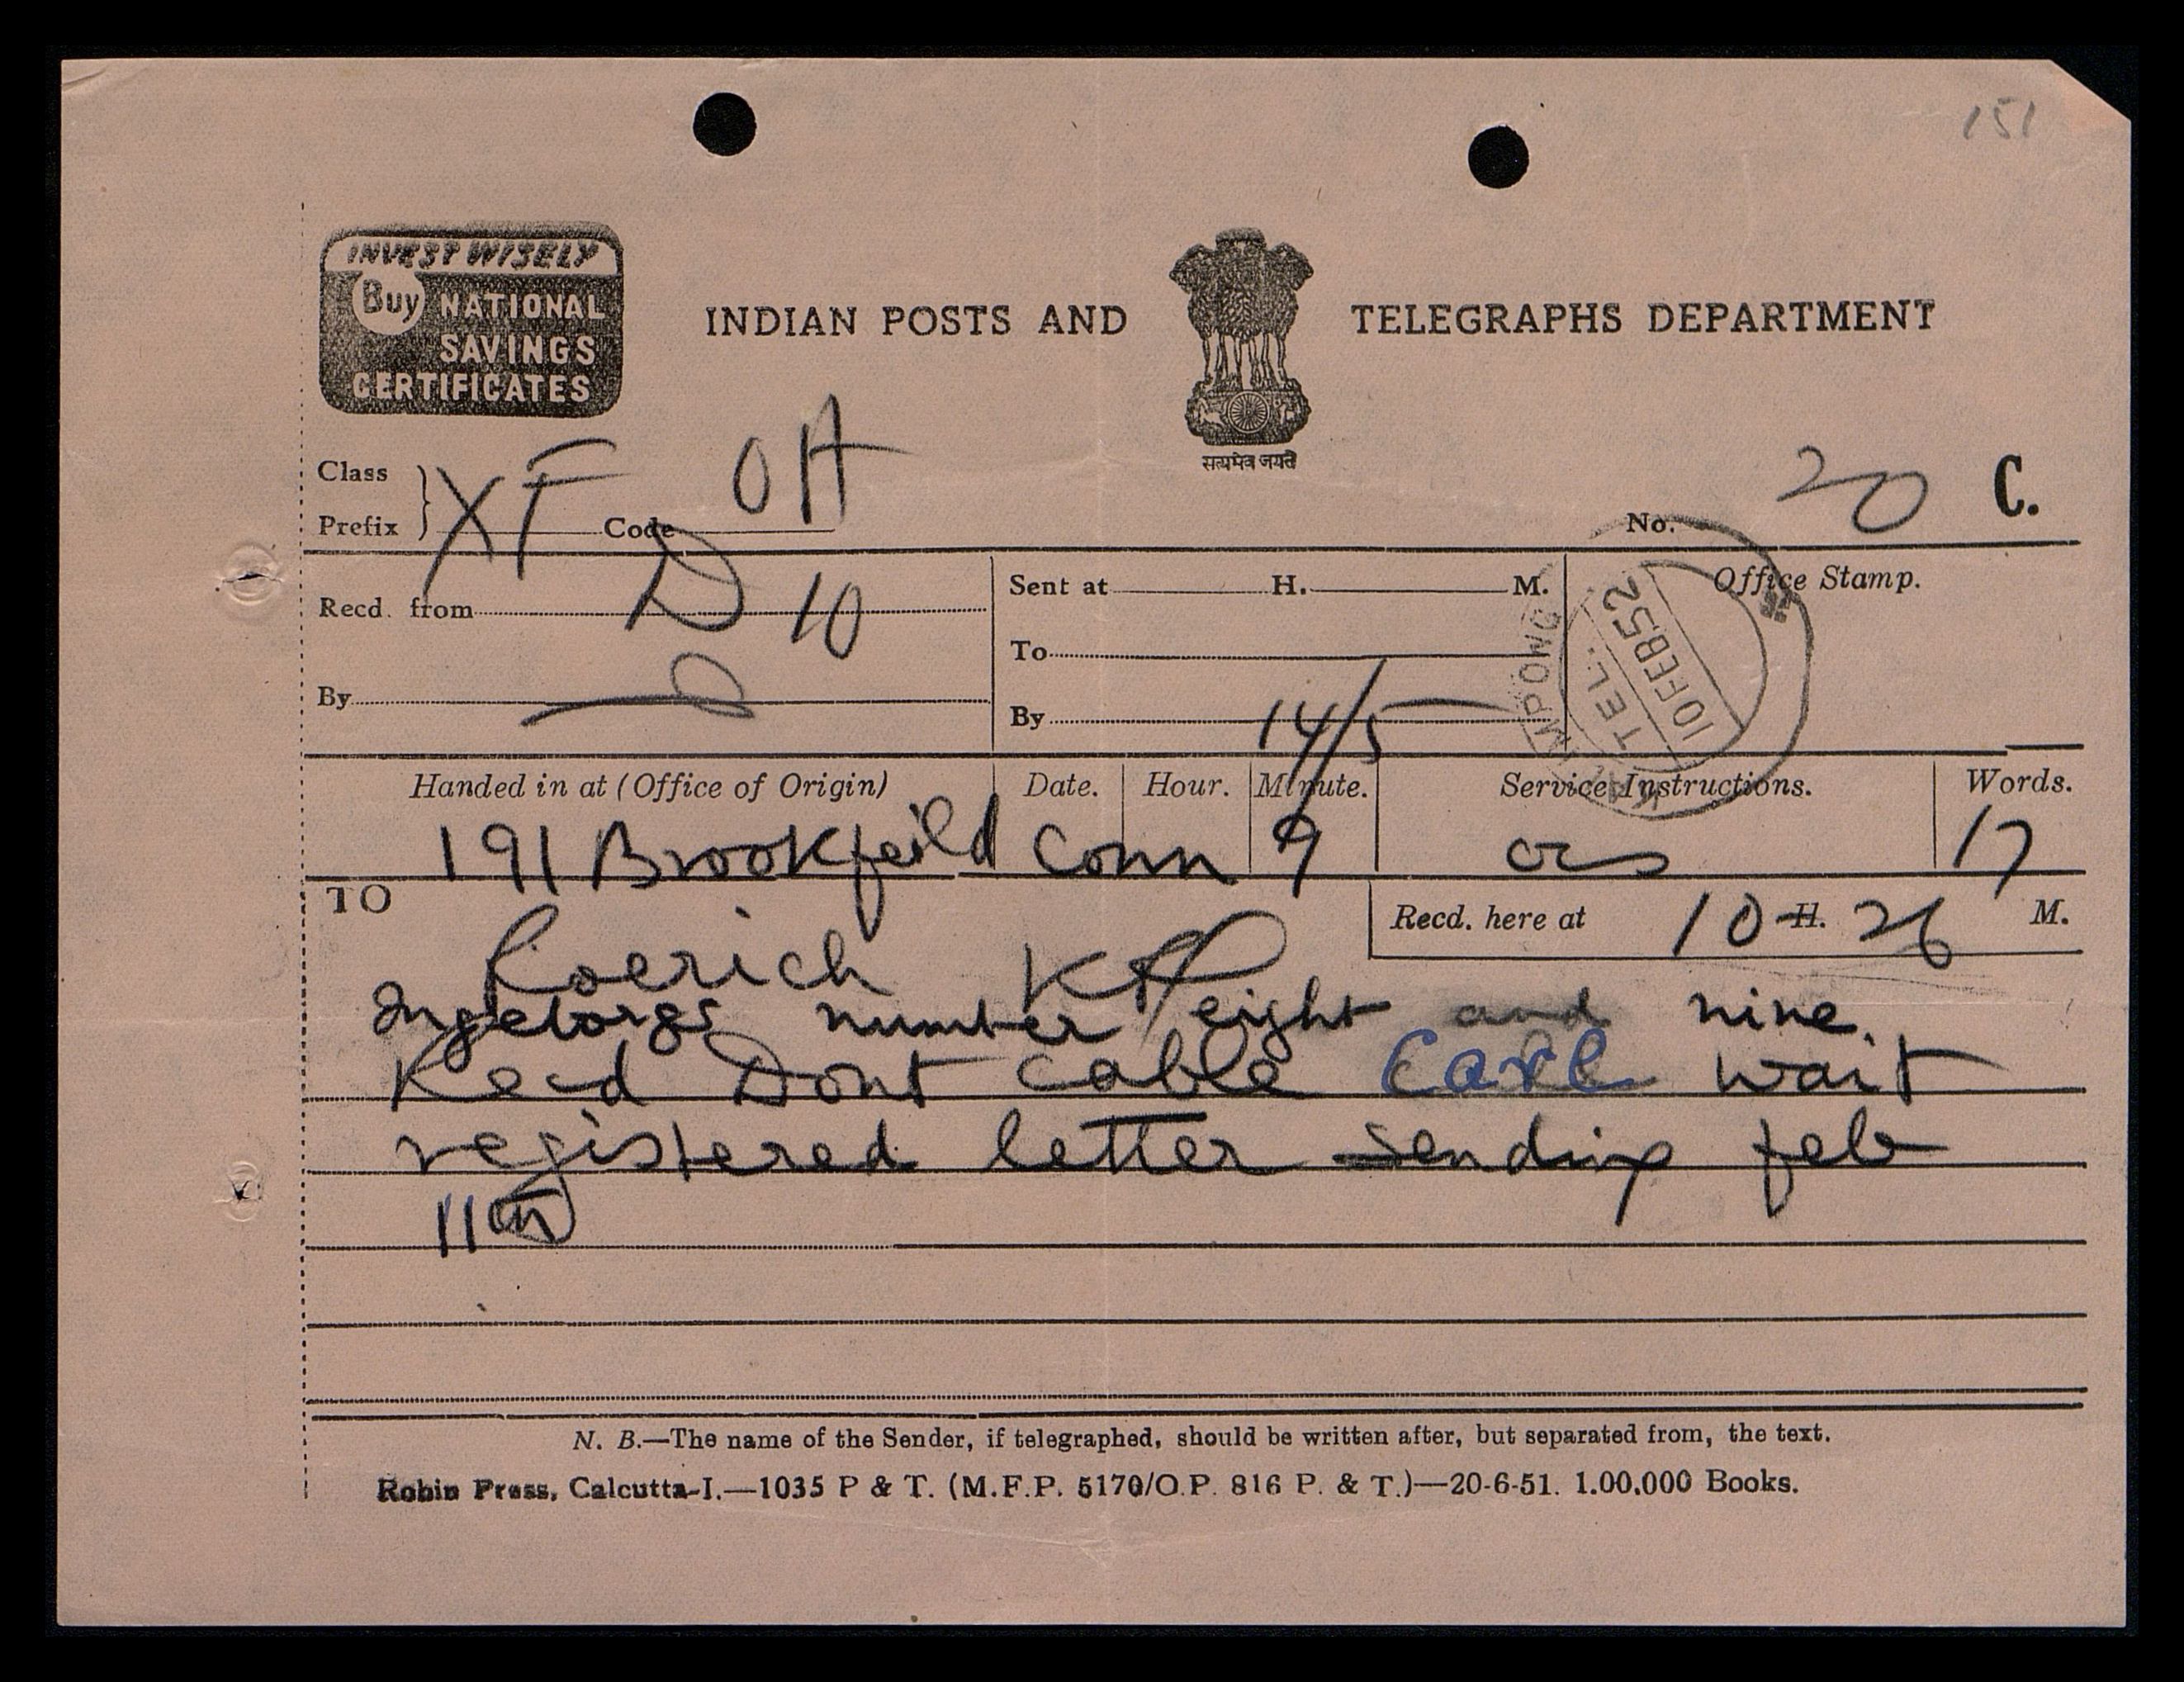 151
INVEST WISELY
Buy NATIONAL
SAVINGS
CERTIFICATES
INDIAN POSTS AND TELEGRAPHS DEPARTMENT
सत्यमेव जयते
Class
Prefix } XF Code OA No. 20 C.
Recd. from D 10
By
Sent at H. M.
To
By
14/5
Office Stamp.
MPONG
TEL.
10FEB52
Handed in at (Office of Origin) Date. Hour. Minute. Service Instructions. Words.
191 Brookfeild Conn 9 17
TO
Recd. here at 10 H. 26 M.
Roerich
Ingeborgs number eight and nine.
Recd Dont cable Carl wait
registered letter sending feb
11th
N. B.—The name of the Sender, if telegraphed, should be written after, but separated from, the text.
Robin Press, Calcutta-I.—1035 P & T. (M.F.P. 5170/O.P. 816 P. & T.)—20-6-51. 1.00.000 Books.